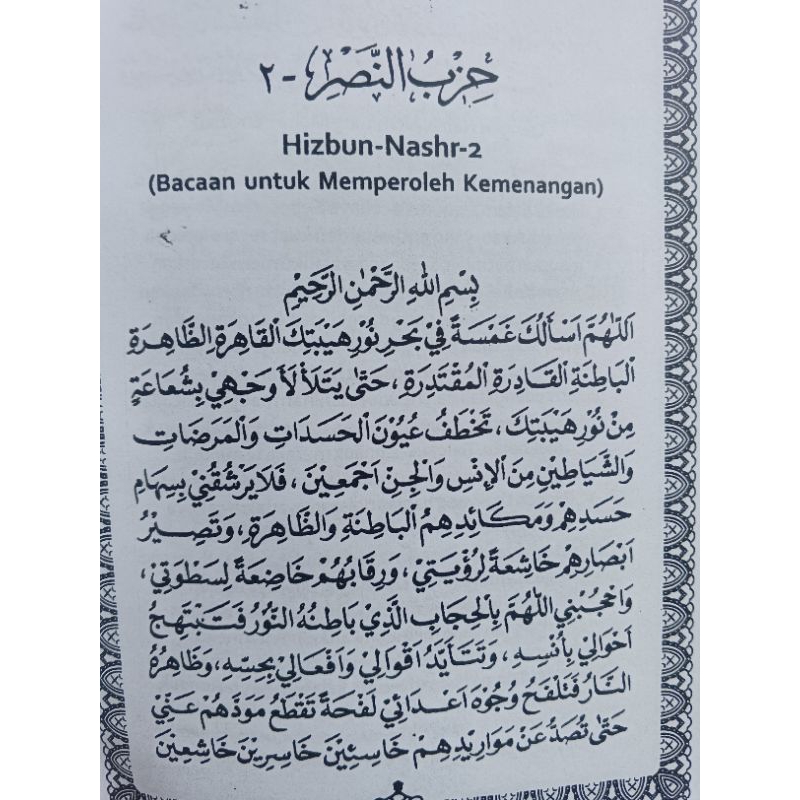 حِزْبُ النَّصْرِ - ٢
Hizbun-Nashr-2
(Bacaan untuk Memperoleh Kemenangan)
بِسْمِ اللهِ الرَّحْمٰنِ الرَّحِيْمِ
اَللّٰهُمَّ اَسْأَلُكَ غَمْسَةً فِيْ بَحْرِ نُوْرِ هَيْبَتِكَ الْقَاهِرَةِ الظَّاهِرَةِ
الْبَاطِنَةِ الْقَادِرَةِ الْمُقْتَدِرَةِ، حَتّٰى يَتَلَأْ لَأَ وَجْهِيْ بِشُعَاعَةٍ
مِنْ نُوْرِ هَيْبَتِكَ، تَخْطَفُ عُيُوْنَ الْحَسَدَاتِ وَالْمَرَضَاتِ
وَالشَّيَاطِيْنِ مِنَ الْإِنْسِ وَالْجِنِّ اَجْمَعِيْنَ، فَلَا يَرْشُقُنِيْ بِسِهَامِ
حَسَدِهِمْ وَمَكَائِدِهِمُ الْبَاطِنَةِ وَالظَّاهِرَةِ، وَتَصِيْرُ
اَبْصَارِهِمْ خَاشِعَةً لِرُؤْيَتِيْ، وَرِقَابُهُمْ خَاضِعَةً لِسَطْوَتِيْ،
وَاحْجُبْنِي اللّٰهُمَّ بِالْحِجَابِ الَّذِيْ بَاطِنُهُ النُّوْرُ فَتَبْتَهِجُ
اَحْوَالِيْ بِأُنْسِهِ، وَتَتَأَيَّدُ اَقْوَالِيْ وَاَفْعَالِيْ بِحِسِّهِ، وَظَاهِرُهُ
النَّارُ فَتَلْفَحُ وُجُوْهَ اَعْدَائِيْ لَفْحَةً تَقْطَعُ مَوَدَّهُمْ عَنِّيْ
حَتّٰى تُصَدُّ عَنْ مَوَارِيْدِهِمْ خَاسِئِيْنَ خَاسِرِيْنَ خَاشِعِيْنَ